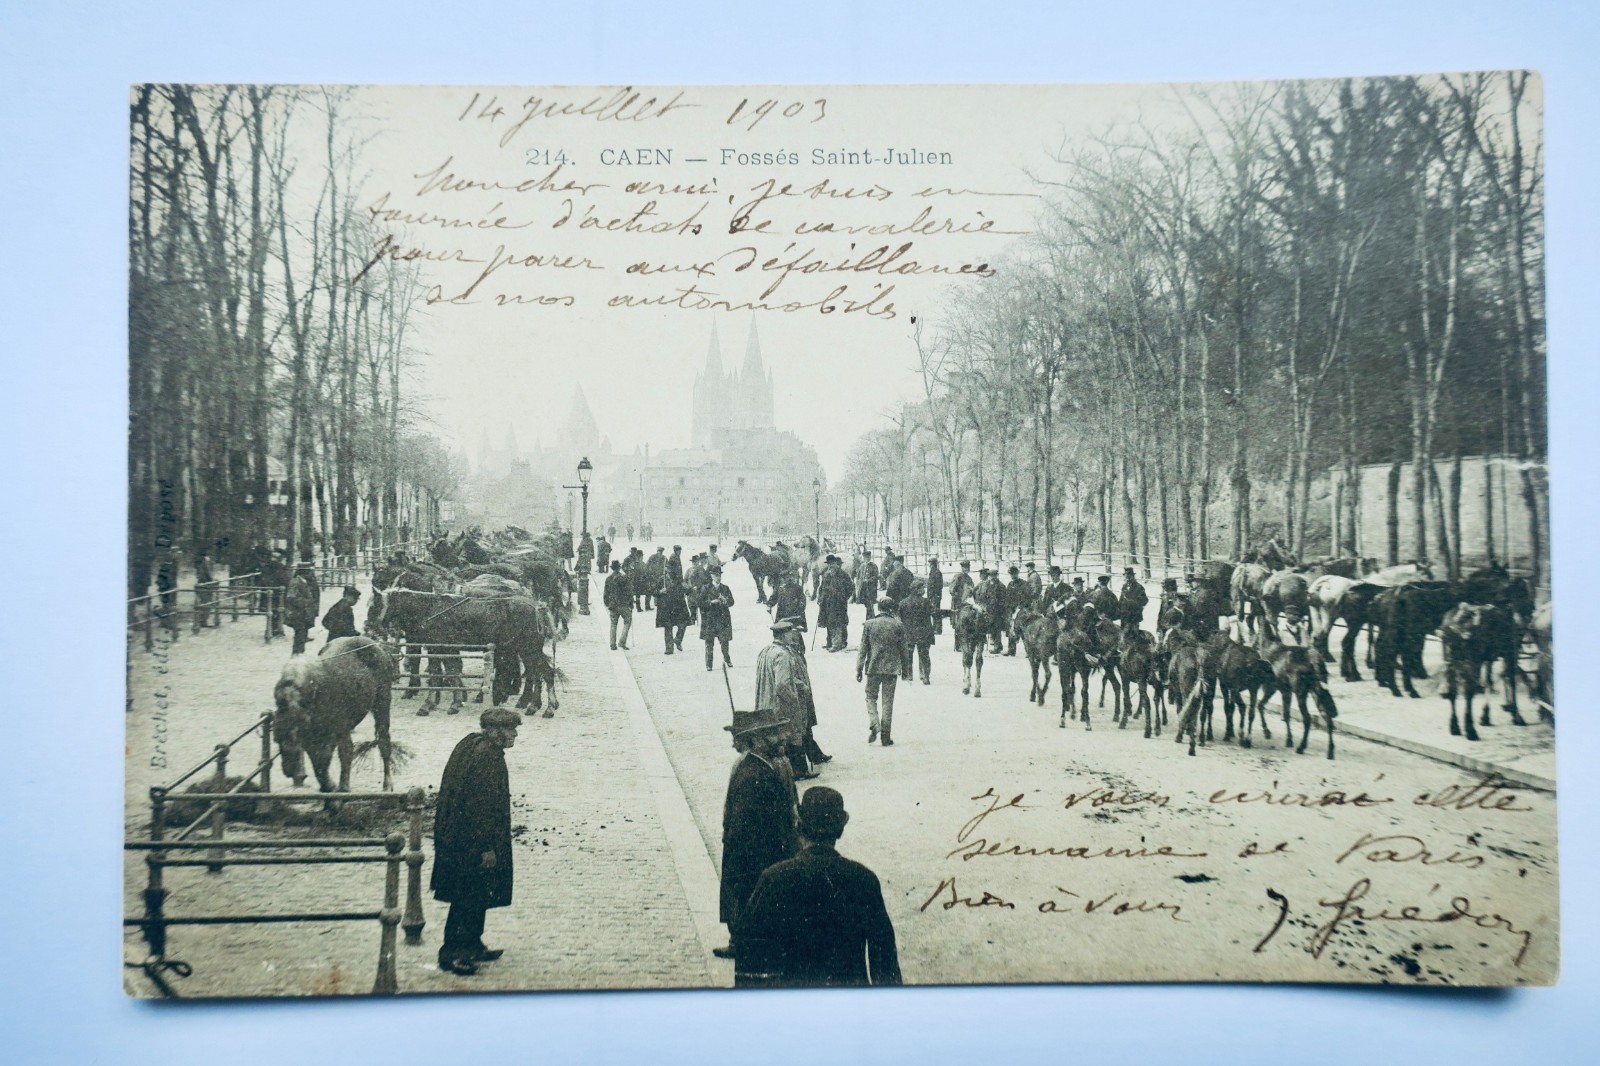 14 Juillet 1903
214. CAEN — Fossés Saint-Julien
Mon cher ami, je suis en
tournée d'achats de cavalerie
pour parer aux défaillances
de nos automobiles.
Je vous écrirai cette
semaine de Paris
Bien à vous J Guédon
Bréchet, édit. Caen Déposé